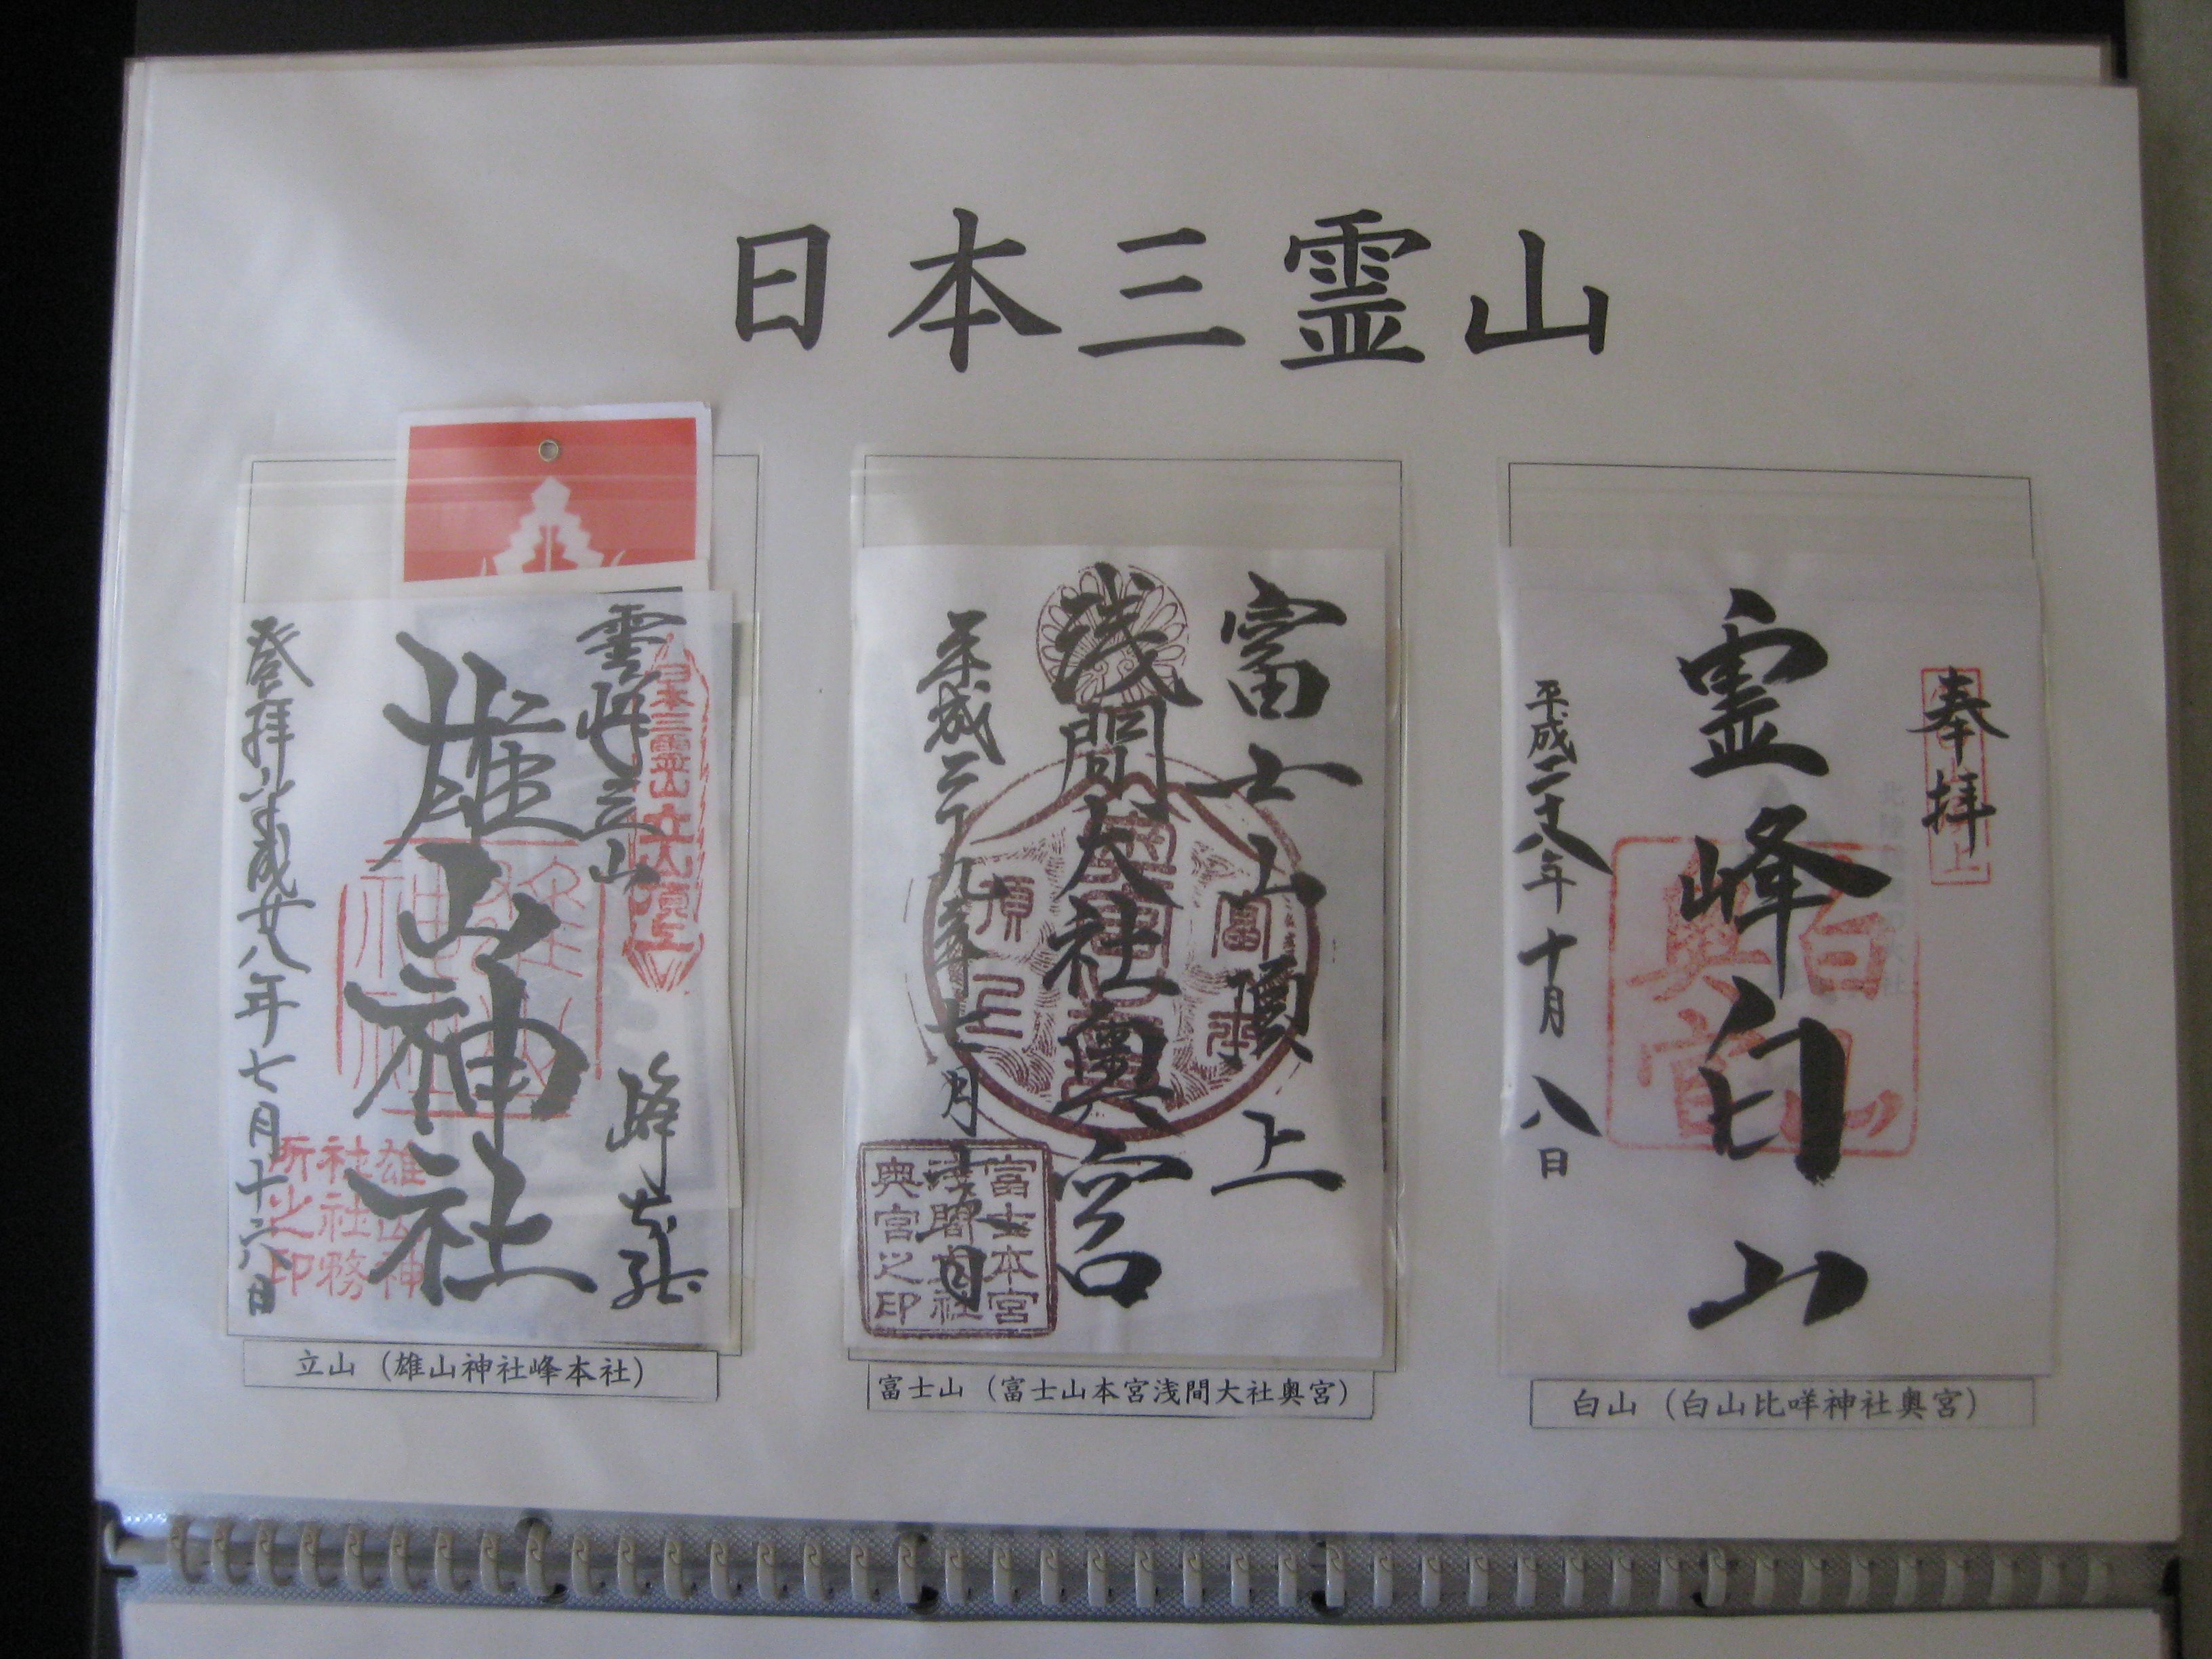 日本三霊山
雲峰立山
雄山神社
登拝
平成廿八年七月十六日
日本三霊山
立山頂上
雄山神
社社務
所之印
立山（雄山神社峰本社）
富士山頂上
浅間大社奥宮
平成二十九年七月
富士本宮
浅間大社
奥宮之印
富士山（富士山本宮浅間大社奥宮）
奉拝
霊峰白山
平成二十八年十月八日
白山
奥宮
白山（白山比咩神社奥宮）